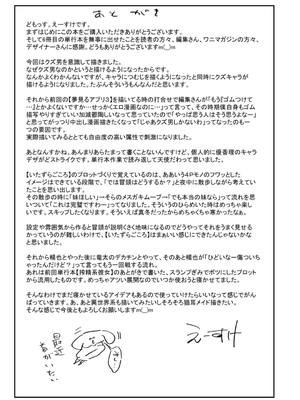 あとがき
どもっす、えーすけです。
まずはじめにこの本をご購入いただきありがとうございます。
そして6冊目の単行本を無事に出せたことを読者の方々、編集さん、ワニマガジンの方々、
デザイナーさんに感謝。どうもありがとうございますm(__)m
今回はクズ男を意識して描きました。
なぜクズ男なのかというと描けるようになったからです。
なんかよくわかんないですが、キャラにつむじを描くようになったと同時にクズキャラが
描けるようになりました。たぶんそういうもんなんだと思います。
それから前回の【夢見るアプリ3】を描いてる時の打合せで編集さんが「もう『ゴムつけて
…』とかよくないですか…せっかくエロ漫画なのに…」って言って、その時期僕自身もゴム
描写やりすぎていい加減鬱陶しいなって思っていたので「やっぱ思う人はそう思うよなー」
と思ってがっつり中出し漫画描きたくなって「じゃあクズ男しかないわ」ってなったのも一
つの要因です。
実際描いてみるととても自由度の高い属性で刺激になりました。
あとなんすかね。あんまりあらたまって書くことないんですけど、個人的に優香理のキャラ
デザがどストライクです。単行本作業で読み返して天使だわって思いました。
【いたずらごころ】のプロットづくりで覚えているのは、ああいう4Pモノのフワッとした
イメージはできている段階で、「では冒頭はどうするか？」と夜中に散歩しながら考えてい
たことを思い出します。
その散歩の時に「妹ほしい」→そらのメスガキムーブ→「でも本当の妹なら」って流れを思
いついて「これは完璧ですわー」ってなりました。そういうのひらめいた時はめっちゃ楽し
いです。スキップしたくなります。そういえば真冬だったからめちゃくちゃ寒かったなぁ。
設定や雰囲気から作ると冒頭が説明くさく地味になるのでどうやってそれをうまく見せる
かっていうのが難しいわけで、【いたずらごころ】はまぁいい感じにできたんじゃないかな
と思いました。
そんなわけでまだ寝かせているアイデアもあるので使っていけたらいいなって感じでがん
ばっていきます。あ、あと異世界系も描いてみたいしそろそろ猫耳メイド描きたい。
そんな感じで今後ともよろしくお願いしますm(__)m
えーすけ